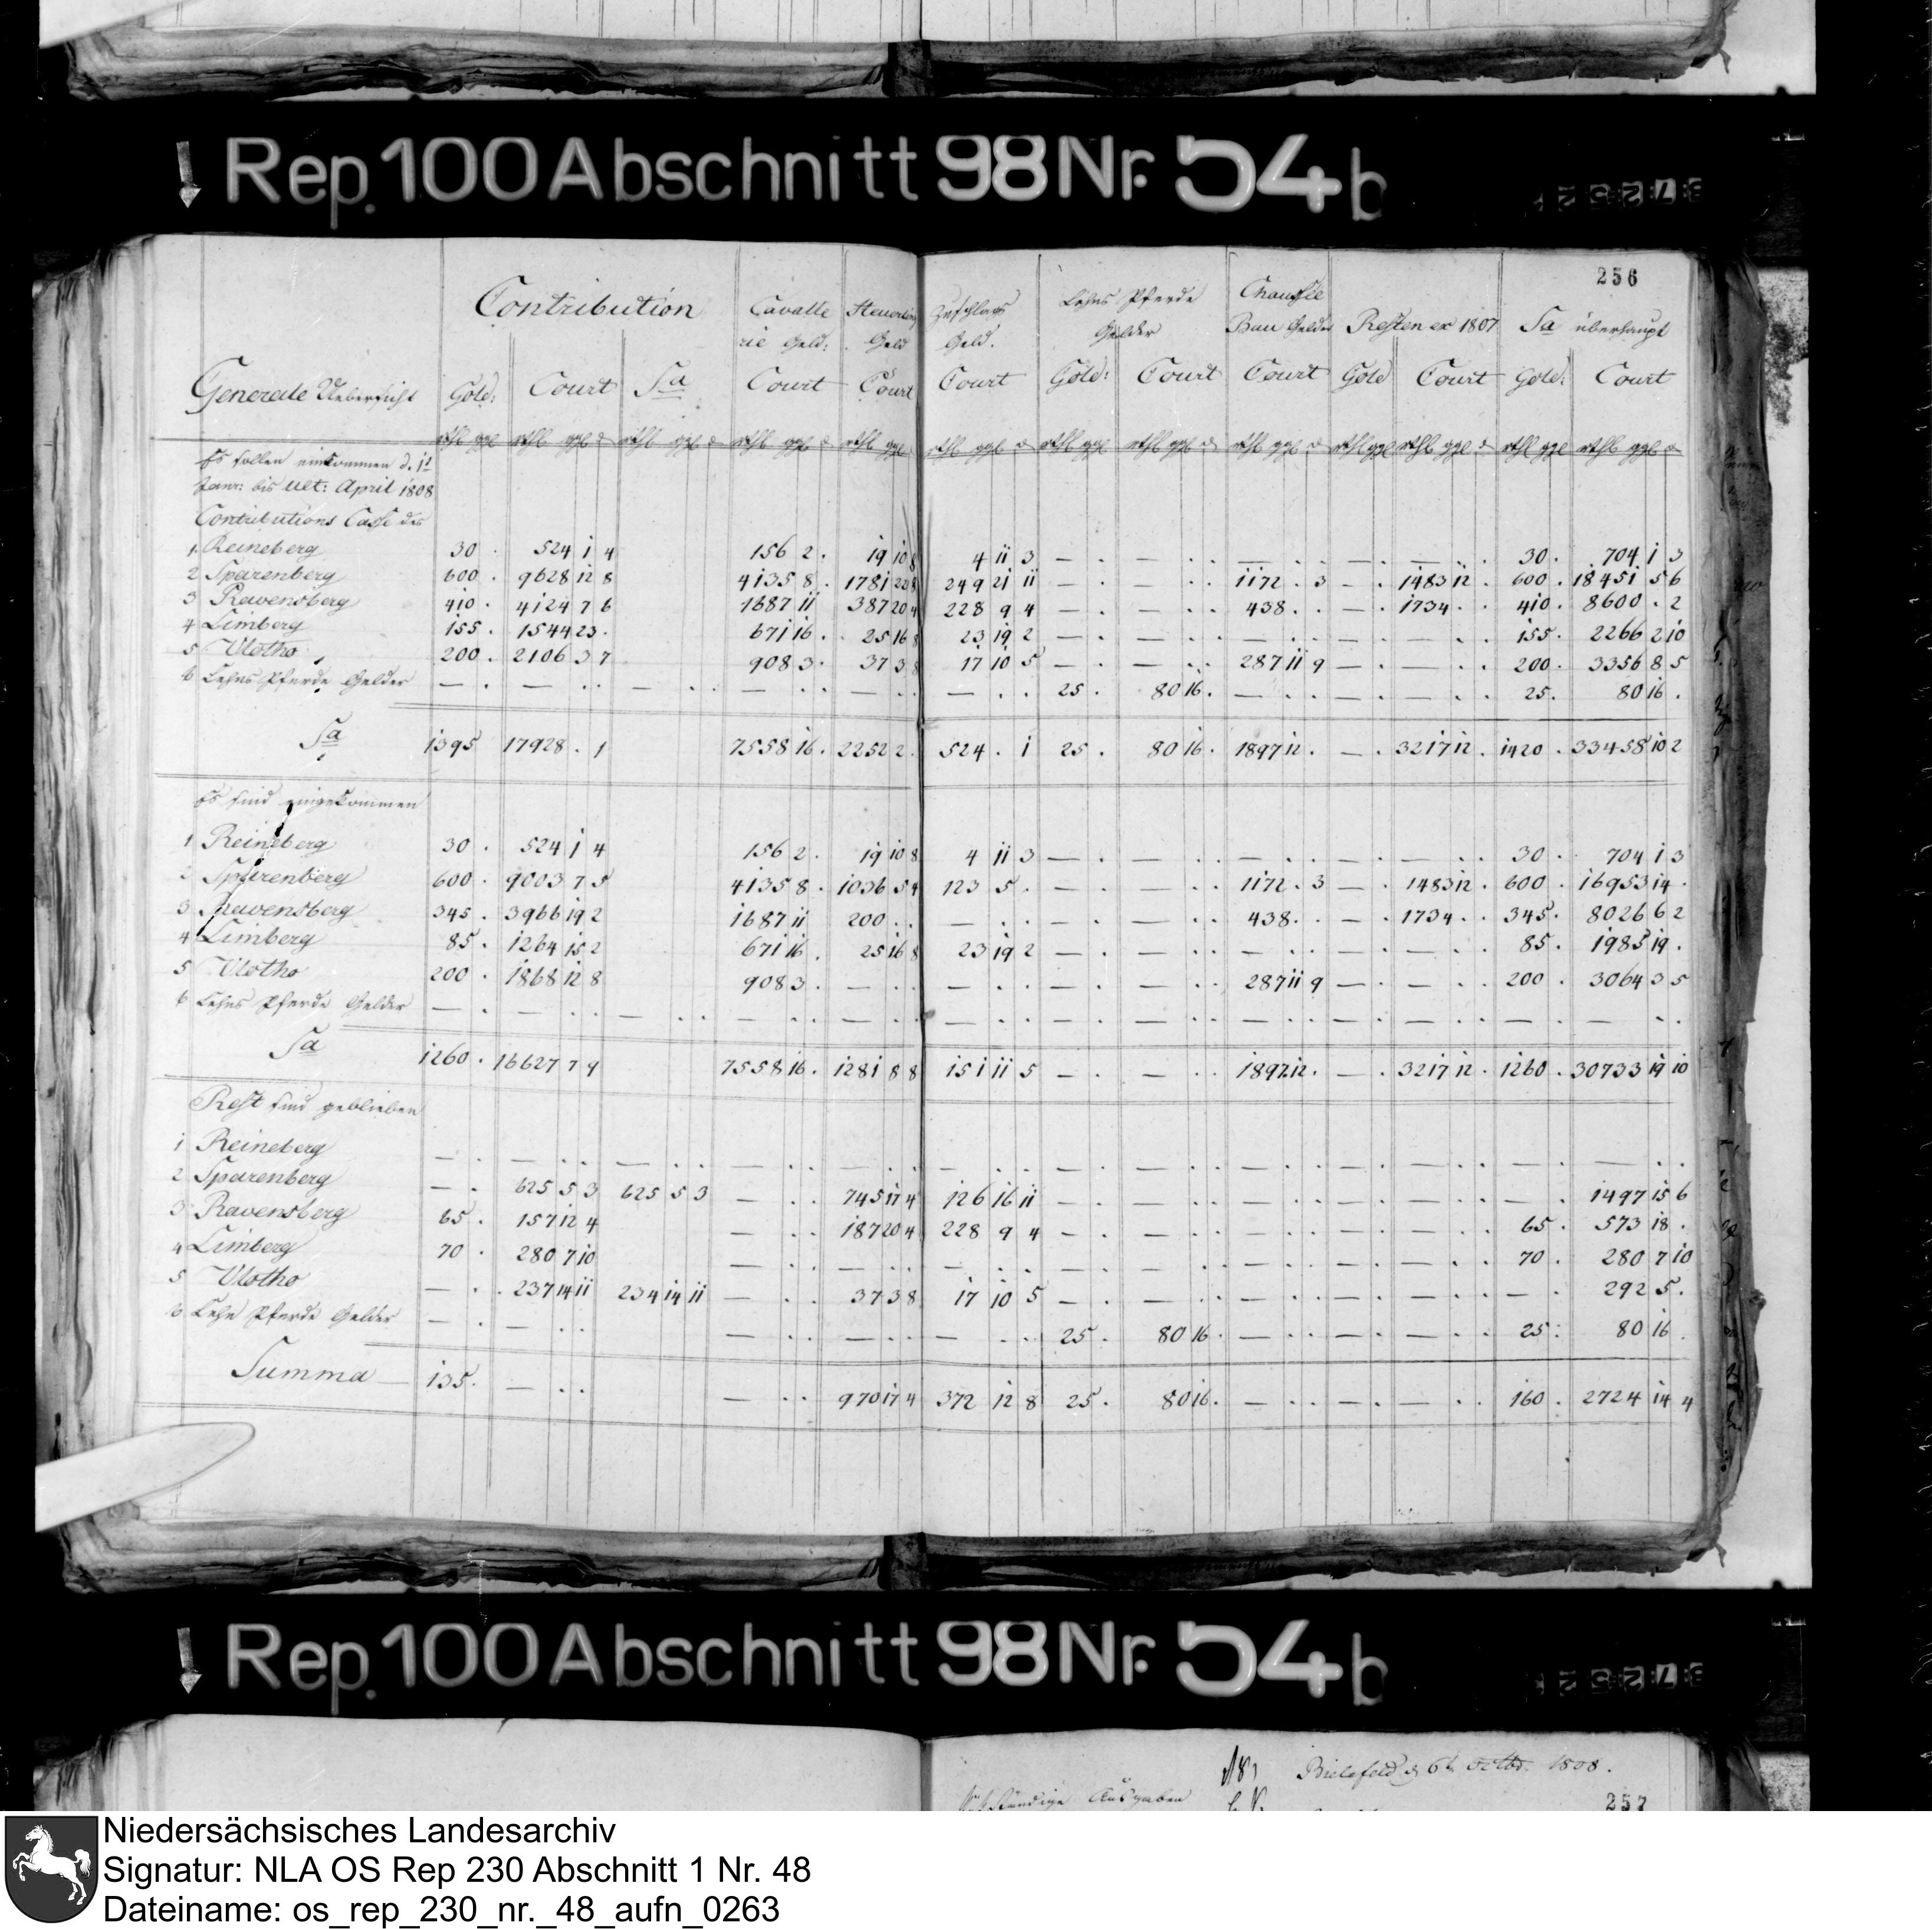 Rep. 100 Abschnitt 98 Nr. 54 b
256
Contribution Cavalle Steuerling Zuschlags Lehns Pferde Chaussée
rie Geld: Geld Geld. Gelder Bau Gelder Resten ex 1807 Sa überhaupt
Generale Uebersicht Gold: Court Sa Court Court Court Gold: Court Court Gold Court Gold: Court
rthl ggl rthl ggl d rthl ggl d rthl ggl d rthl ggl rthl ggl d rthl ggl rthl ggl d rthl ggl d rthl ggl rthl ggl d rthl ggl rthl ggl d
Es sollen einkommen d. 1t
Janr: bis ult: April 1808
Contributions Casse des
1 Reineberg 30 . 524 1 4 156 2 . 19 10 8 4 11 3 — . — . . — . . — . — . . 30 . 704 1 3
2 Sparenberg 600 . 9628 12 8 4135 8 . 1781 22 8 249 21 11 — . — . . 1172 . 3 — . 1483 12 . 600 . 18451 5 6
3 Ravensberg 410 . 4124 7 6 1687 11 387 20 4 228 9 4 — . — . . 438 . . — . 1734 . . 410 . 8600 . 2
4 Limberg 155 . 1544 23 . 671 16 . 25 16 8 23 19 2 — . — . . — . . — . — . . 155 . 2266 2 10
5 Vlotho 200 . 2106 3 7 908 3 . 37 3 8 17 10 5 — . — . . 287 11 9 — . — . . 200 . 3356 8 5
6 Lehns Pferde Gelder — . — . . — . . — . . — . . — . . 25 . 80 16 . — . . — . — . . 25 . 80 16 .
Sa 1395 17928 . 1 7558 16 . 2252 2 . 524 . 1 25 . 80 16 . 1897 12 . — . 3217 12 . 1420 . 33458 10 2
Es sind eingekommen
1 Reineberg 30 . 524 1 4 156 2 . 19 10 8 4 11 3 — . — . . — . . — . — . . 30 . 704 1 3
2 Sparenberg 600 . 9003 7 5 4135 8 . 1036 5 4 123 5 . — . — . . 1172 . 3 — . 1483 12 . 600 . 16953 14 .
3 Ravensberg 345 . 3966 19 2 1687 11 200 . . — . . — . — . . 438 . . — . 1734 . . 345 . 8026 6 2
4 Limberg 85 . 1264 15 2 671 16 . 25 16 8 23 19 2 — . — . . — . . — . — . . 85 . 1985 19 .
5 Vlotho 200 . 1868 12 8 908 3 . — . . — . . — . — . . 287 11 9 — . — . . 200 . 3064 3 5
6 Lehns Pferde Gelder — . — . . — . . — . . — . . — . . — . — . . — . . — . — . . — . — . .
Sa 1260 . 16627 7 9 7558 16 . 1281 8 8 151 11 5 — . — . . 1897 12 . — . 3217 12 . 1260 . 30733 19 10
Rest sind geblieben
1 Reineberg — . — . . — . . — . . — . . — . . — . — . . — . . — . — . . — . — . .
2 Sparenberg — . 625 5 3 625 5 3 — . . 745 17 4 126 16 11 — . — . . — . . — . — . . — . 1497 15 6
3 Ravensberg 65 . 157 12 4 — . . 187 20 4 228 9 4 — . — . . — . . — . — . . 65 . 573 18 .
4 Limberg 70 . 280 7 10 — . . — . . — . . — . — . . — . . — . — . . 70 . 280 7 10
5 Vlotho — . 237 14 11 234 14 11 — . . 37 3 8 17 10 5 — . — . . — . . — . — . . — . 292 5 .
6 Lehn Pferde Gelder — . — . . — . . — . . — . . 25 . 80 16 . — . . — . — . . 25 : 80 16 .
Summa 135 . — . . — . . 970 17 4 372 12 8 25 . 80 16 . — . . — . — . . 160 . 2724 14 4
Rep. 100 Abschnitt 98 Nr. 54 b
Bielefeld d 6t Octbr. 1808.
Ausgaben
257
Niedersächsisches Landesarchiv
Signatur: NLA OS Rep 230 Abschnitt 1 Nr. 48
Dateiname: os_rep_230_nr._48_aufn_0263